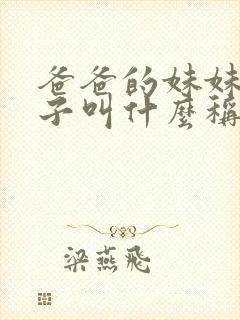 爸爸的妹妹
子叫什麼稱
梁燕飛